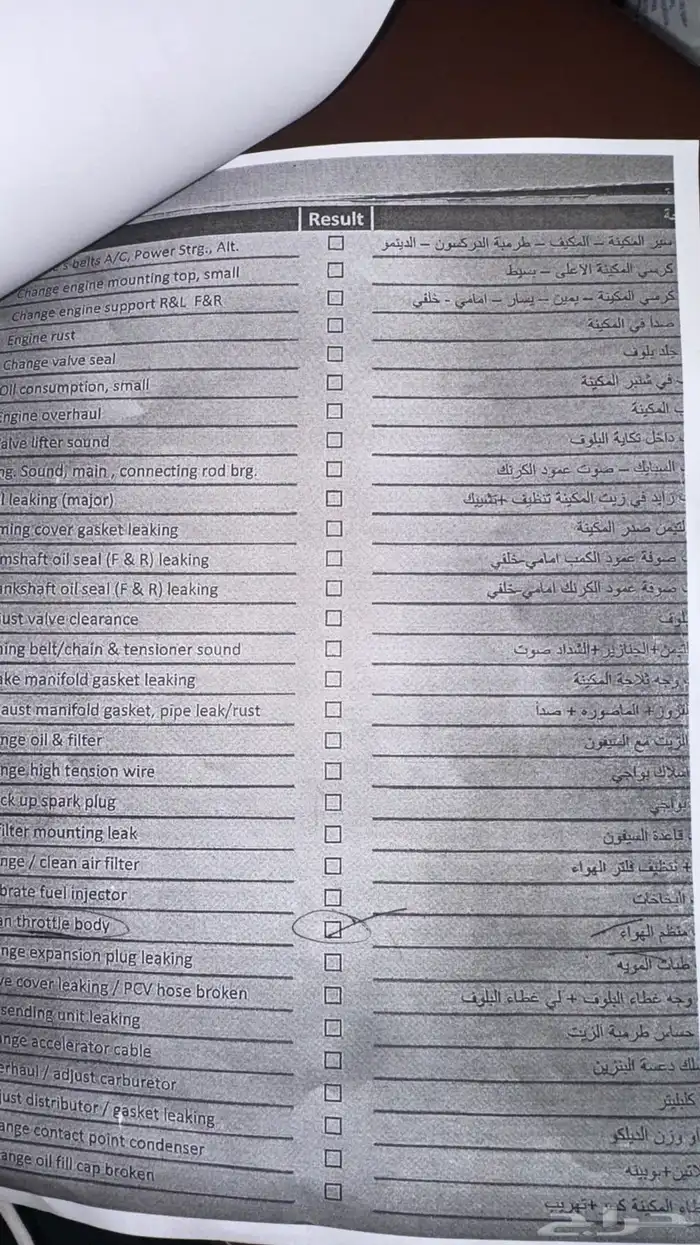 Result
belts A/C, Power Strg., Alt. سير المكينة – المكيف – طرمبة الدركسون – الدينمو
Change engine mounting top, small كرسي المكينة الأعلى – بسيط
Change engine support R&L F&R كرسي المكينة – يمين – يسار – امامي - خلفي
Engine rust صدأ في المكينة
Change valve seal جلد بلوف
Oil consumption, small في شنبر المكينة
Engine overhaul المكينة
alve lifter sound داخل تكاية البلوف
ng. Sound, main , connecting rod brg. السبايك – صوت عمود الكرنك
l leaking (major) زايد في زيت المكينة تنظيف +تشييك
ming cover gasket leaking التيمن صدر المكينة
mshaft oil seal (F & R) leaking صوفة عمود الكمب امامي-خلفي
ankshaft oil seal (F & R) leaking صوفة عمود الكرنك امامي-خلفي
ust valve clearance بلوف
ning belt/chain & tensioner sound تيمن+الجنازير+الشداد صوت
ake manifold gasket leaking وجه ثلاجة المكينة
aust manifold gasket, pipe leak/rust الماصوره + صدأ
nge oil & filter الزيت مع السيفون
nge high tension wire اسلاك بواجي
ck up spark plug بواجي
filter mounting leak قاعدة السيفون
nge / clean air filter + تنظيف فلتر الهواء
brate fuel injector البخاخات
an throttle body منظم الهواء
nge expansion plug leaking طبات المويه
ve cover leaking / PCV hose broken وجه غطاء البلوف + لي غطاء البلوف
sending unit leaking حساس طرمبة الزيت
ange accelerator cable سلك دعسة البنزين
erhaul / adjust carburetor كلبليتر
just distributor / gasket leaking أو وزن الديلكو
ange contact point condenser بلاتين+بوبينه
ange oil fill cap broken المكينة +تهريب
حراج